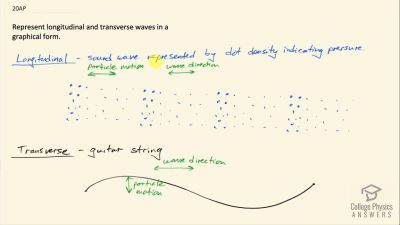 20AP
Represent longitudinal and transverse waves in a
graphical form.
Longitudinal - sound wave represented by dot density indicating pressure.
particle motion wave direction
Transverse - guitar string
wave direction
particle
motion
College Physics
ANSWERS